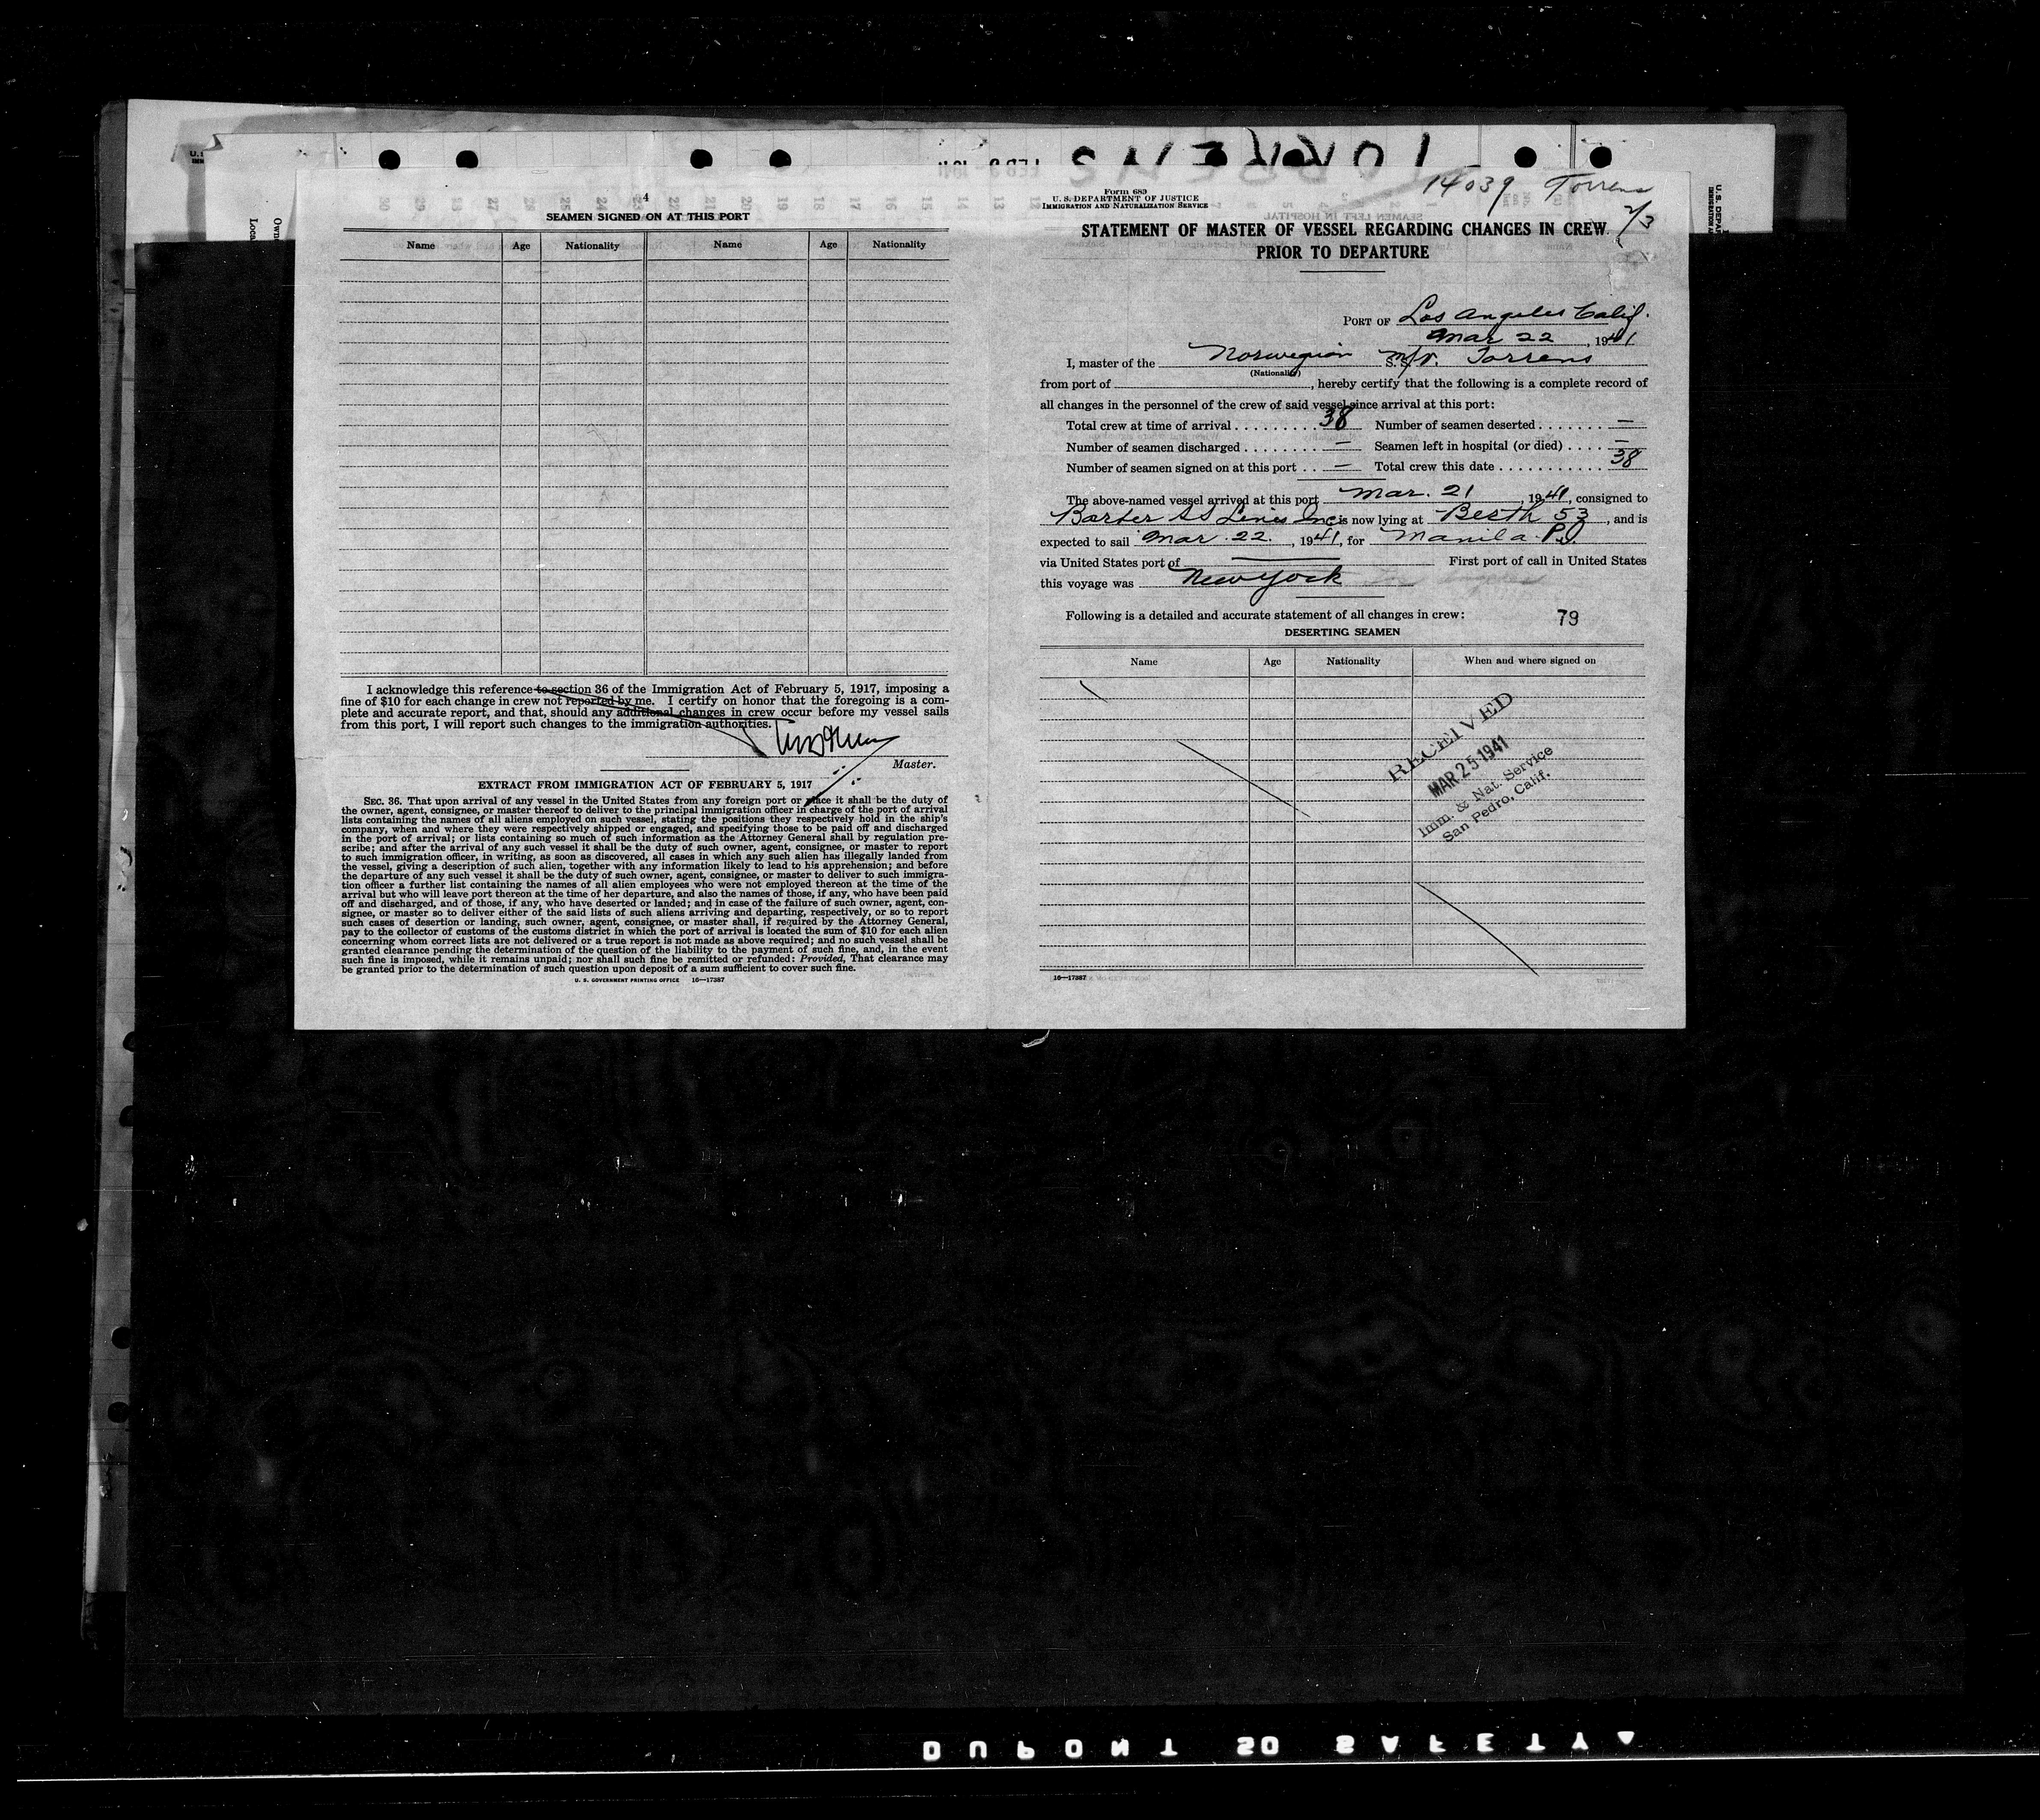 4
SEAMEN SIGNED ON AT THIS PORT
Name Age Nationality Name Age Nationality
I acknowledge this reference to section 36 of the Immigration Act of February 5, 1917, imposing a
fine of $10 for each change in crew not reported by me. I certify on honor that the foregoing is a com-
plete and accurate report, and that, should any additional changes in crew occur before my vessel sails
from this port, I will report such changes to the immigration authorities.
Master.
EXTRACT FROM IMMIGRATION ACT OF FEBRUARY 5, 1917
SEC. 36. That upon arrival of any vessel in the United States from any foreign port or place it shall be the duty of
the owner, agent, consignee, or master thereof to deliver to the principal immigration officer in charge of the port of arrival
lists containing the names of all aliens employed on such vessel, stating the positions they respectively hold in the ship's
company, when and where they were respectively shipped or engaged, and specifying those to be paid off and discharged
in the port of arrival; or lists containing so much of such information as the Attorney General shall by regulation pre-
scribe; and after the arrival of any such vessel it shall be the duty of such owner, agent, consignee, or master to report
to such immigration officer, in writing, as soon as discovered, all cases in which any such alien has illegally landed from
the vessel, giving a description of such alien, together with any information likely to lead to his apprehension; and before
the departure of any such vessel it shall be the duty of such owner, agent, consignee, or master to deliver to such immigra-
tion officer a further list containing the names of all alien employees who were not employed thereon at the time of the
arrival but who will leave port thereon at the time of her departure, and also the names of those, if any, who have been paid
off and discharged, and of those, if any, who have deserted or landed; and in case of the failure of such owner, agent, con-
signee, or master so to deliver either of the said lists of such aliens arriving and departing, respectively, or so to report
such cases of desertion or landing, such owner, agent, consignee, or master shall, if required by the Attorney General,
pay to the collector of customs of the customs district in which the port of arrival is located the sum of $10 for each alien
concerning whom correct lists are not delivered or a true report is not made as above required; and no such vessel shall be
granted clearance pending the determination of the question of the liability to the payment of such fine, and, in the event
such fine is imposed, while it remains unpaid; nor shall such fine be remitted or refunded: Provided, That clearance may
be granted prior to the determination of such question upon deposit of a sum sufficient to cover such fine.
U. S. GOVERNMENT PRINTING OFFICE 16—17387
14039 Torrens
2/3
Form 689
U. S. DEPARTMENT OF JUSTICE
IMMIGRATION AND NATURALIZATION SERVICE
STATEMENT OF MASTER OF VESSEL REGARDING CHANGES IN CREW
PRIOR TO DEPARTURE
PORT OF Los Angeles Calif.
Mar 22, 1941
I, master of the Norwegian S.S. M/V. Torrens
(Nationality)
from port of , hereby certify that the following is a complete record of
all changes in the personnel of the crew of said vessel since arrival at this port:
Total crew at time of arrival . . . . . . . . . 38 Number of seamen deserted . . . . . . . —
Number of seamen discharged . . . . . . . . — Seamen left in hospital (or died) . . . . —
Number of seamen signed on at this port . . — Total crew this date . . . . . . . . . . . 38
The above-named vessel arrived at this port Mar. 21, 1941, consigned to
Barber SS Lines Inc is now lying at Berth 53, and is
expected to sail Mar. 22, 1941, for Manila P.I.
via United States port of — First port of call in United States
this voyage was New York
Following is a detailed and accurate statement of all changes in crew: 79
DESERTING SEAMEN
Name Age Nationality When and where signed on
RECEIVED
MAR 25 1941
Imm. & Nat. Service
San Pedro, Calif.
16—17387
DUPONT SO SAFETY